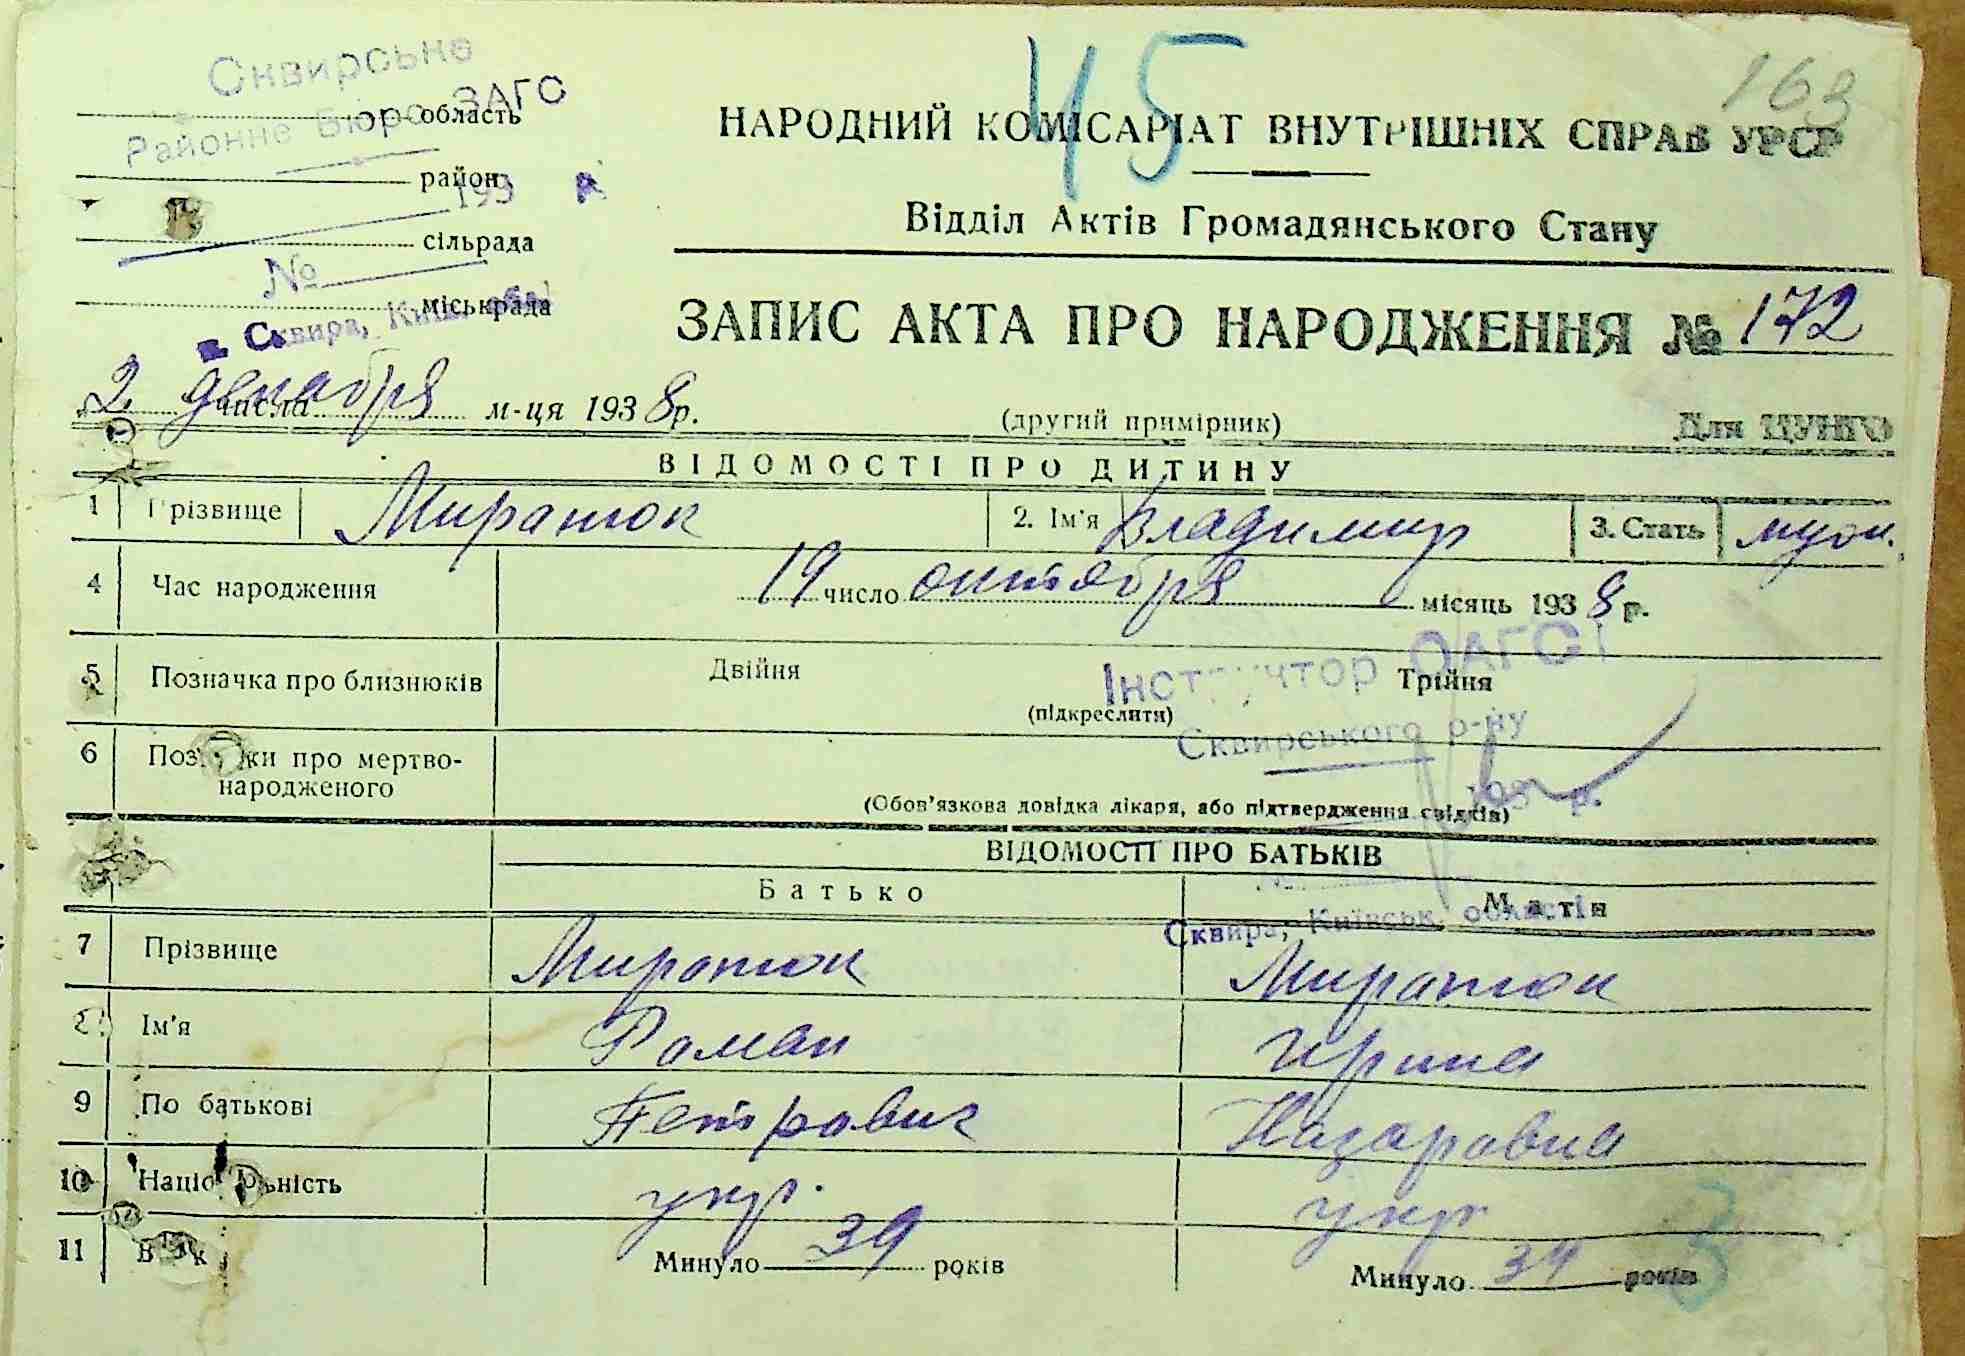 Сквирське
Районне Бюро ЗАГС
область
район
193 р.
сільрада
№
міськрада
м. Сквира, Київ. обл.
45
163
НАРОДНИЙ КОМІСАРІАТ ВНУТРІШНІХ СПРАВ УРСР
Відділ Актів Громадянського Стану
ЗАПИС АКТА ПРО НАРОДЖЕННЯ № 172
2 числа декабря м-ця 1938 р.
(другий примірник)
Для ЦУНГО
ВІДОМОСТІ ПРО ДИТИНУ
1 Прізвище Миратюк 2. Ім'я Владимир 3. Стать муж.
4 Час народження 19 число октября місяць 1938 р.
5 Позначка про близнюків Двійня Трійня
(підкреслити)
Інструктор ОАГС
Сквирського р-ну
193 р.
Сквира, Київськ. області
6 Позначки про мертво-
народженого
(Обов'язкова довідка лікаря, або підтвердження свідків)
ВІДОМОСТІ ПРО БАТЬКІВ
Батько Мати
7 Прізвище Миратюк Миратюк
Ім'я Роман Ирина
9 По батькові Петрович Назаровна
10 Національність укр. укр
11 Вік Минуло 39 років Минуло 34 років